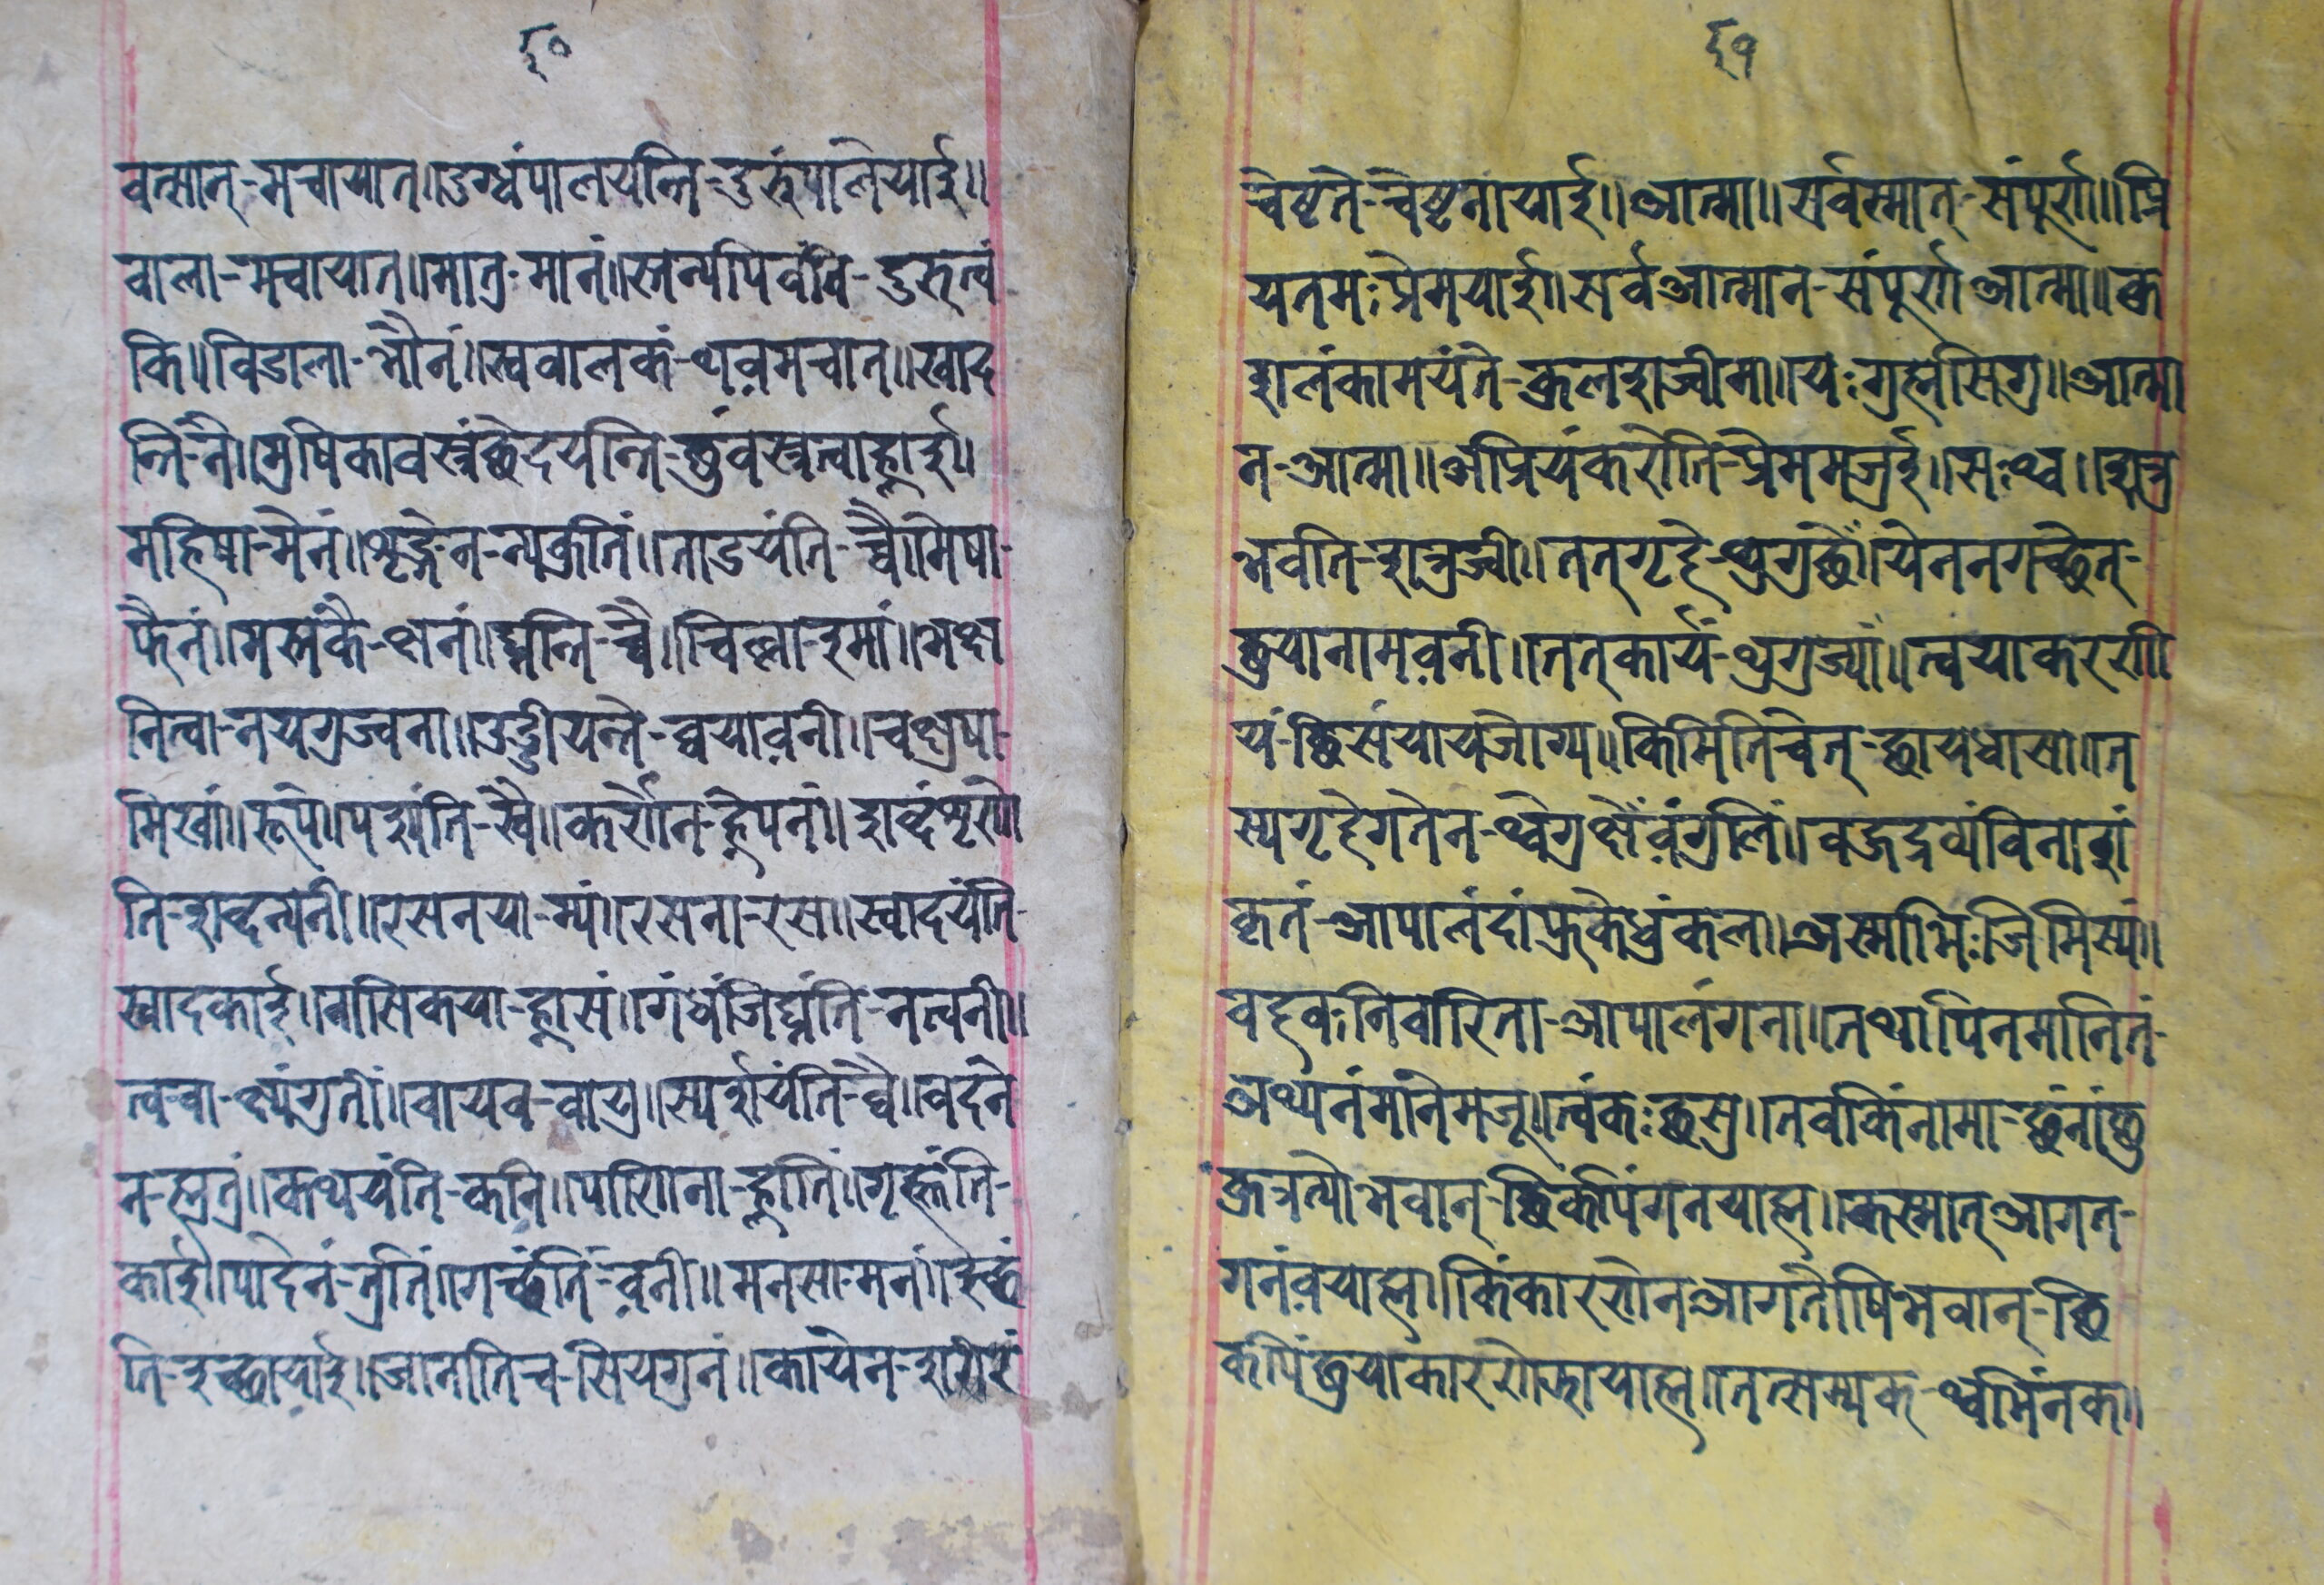 ६०
वत्सान्-मचायात॥दुग्धंपालयन्ति-दुरुंपालेयाई॥
वाला-मचायात॥मात्र-मानं॥स्तन्यपिवंति-दुरुत्वं
कि॥विडाला-भौनं॥स्ववालकं-थवमचात॥खाद
न्ति-नै॥मुषिकावस्त्रंछेदयन्ति-छुंवस्त्रत्वाह्लाई॥
महिषा-मेनं॥शृङ्गेन-न्यकुतिं॥ताडयंति-च्वै॥मेषा-
फैनं॥मस्तकै-क्षनं॥घ्नन्ति-च्वै॥चिल्ला-इमां॥भक्ष
नित्वा-नयगुज्वना॥उड्डीयन्ते-ब्वयावनी॥चक्षुषा-
मिखां॥रूपं॥पश्यंति-स्वै॥कर्णेन-ह्रेपनं॥शब्दंशृणो
ति-शब्दन्यनी॥रसनया-म्यं॥रसना-रस॥स्वादयंति-
स्वादकाई॥नासिकया-ह्नासं॥गंधंजिघ्रंति-नत्वनी॥
त्व-चा-क्ष्यंगुती॥वायव-वायु॥स्पर्शयंति-थ्वै॥वदने
न-ह्मुतुं॥कथयंति-कनि॥पाणिना-ह्लातिं॥गृह्नंति-
काई॥पादेनं-तुतिं॥गच्छंति-वनी॥मनसा-मनं॥इच्छं
ति-इच्छायाई॥जानातिच-सियगुनं॥कायेन-शरीरं
६१
चेष्टते-चेष्टनायाई॥आत्मा॥सर्वस्मात्-संपुर्ण॥प्रि
यतमः-प्रेमयाई॥सर्वआत्मान-संपुर्णआत्मा॥कु
शलंकामयंते-कुलशज्वीमा॥यः-गुह्मसिगु॥आत्मा
न-आत्मा॥अप्रियंकरोति-प्रेममजुई॥सः-थ्व॥शत्रु
भवति-शत्रुज्वी॥तत्गृहे-थुगुछेँ॥येननगच्छेत्-
छुयानामवनी॥तत्कार्यं-थुगुज्यां॥त्वयाकरणी
यं-छिसंयायजोग्य॥किमितिचेत्-छायधासा॥त
स्यगृहेगतेन-थ्वेगुछेँवंगुलिं॥वज्रद्रव्यंविनाशं
कृतं-आपालंदांफुकेधुंकल॥अस्माभिः-जिमिस्यं॥
वहकनिवारिता-आपालंगना॥तथापिनमानितं-
अथ्यनंमानेमजू॥त्वंकः-छसु॥तवकिंनामा-छंनांछु
कुत्रत्योभवान्-छिकपिंगनयाह्म॥कस्मात्आगत-
गनंवयाह्म॥किंकारणेनआगतोषिभवान्-छि
कपिंछुयाकारणेझायाह्म॥तत्सम्यक-थ्वभिंनक॥